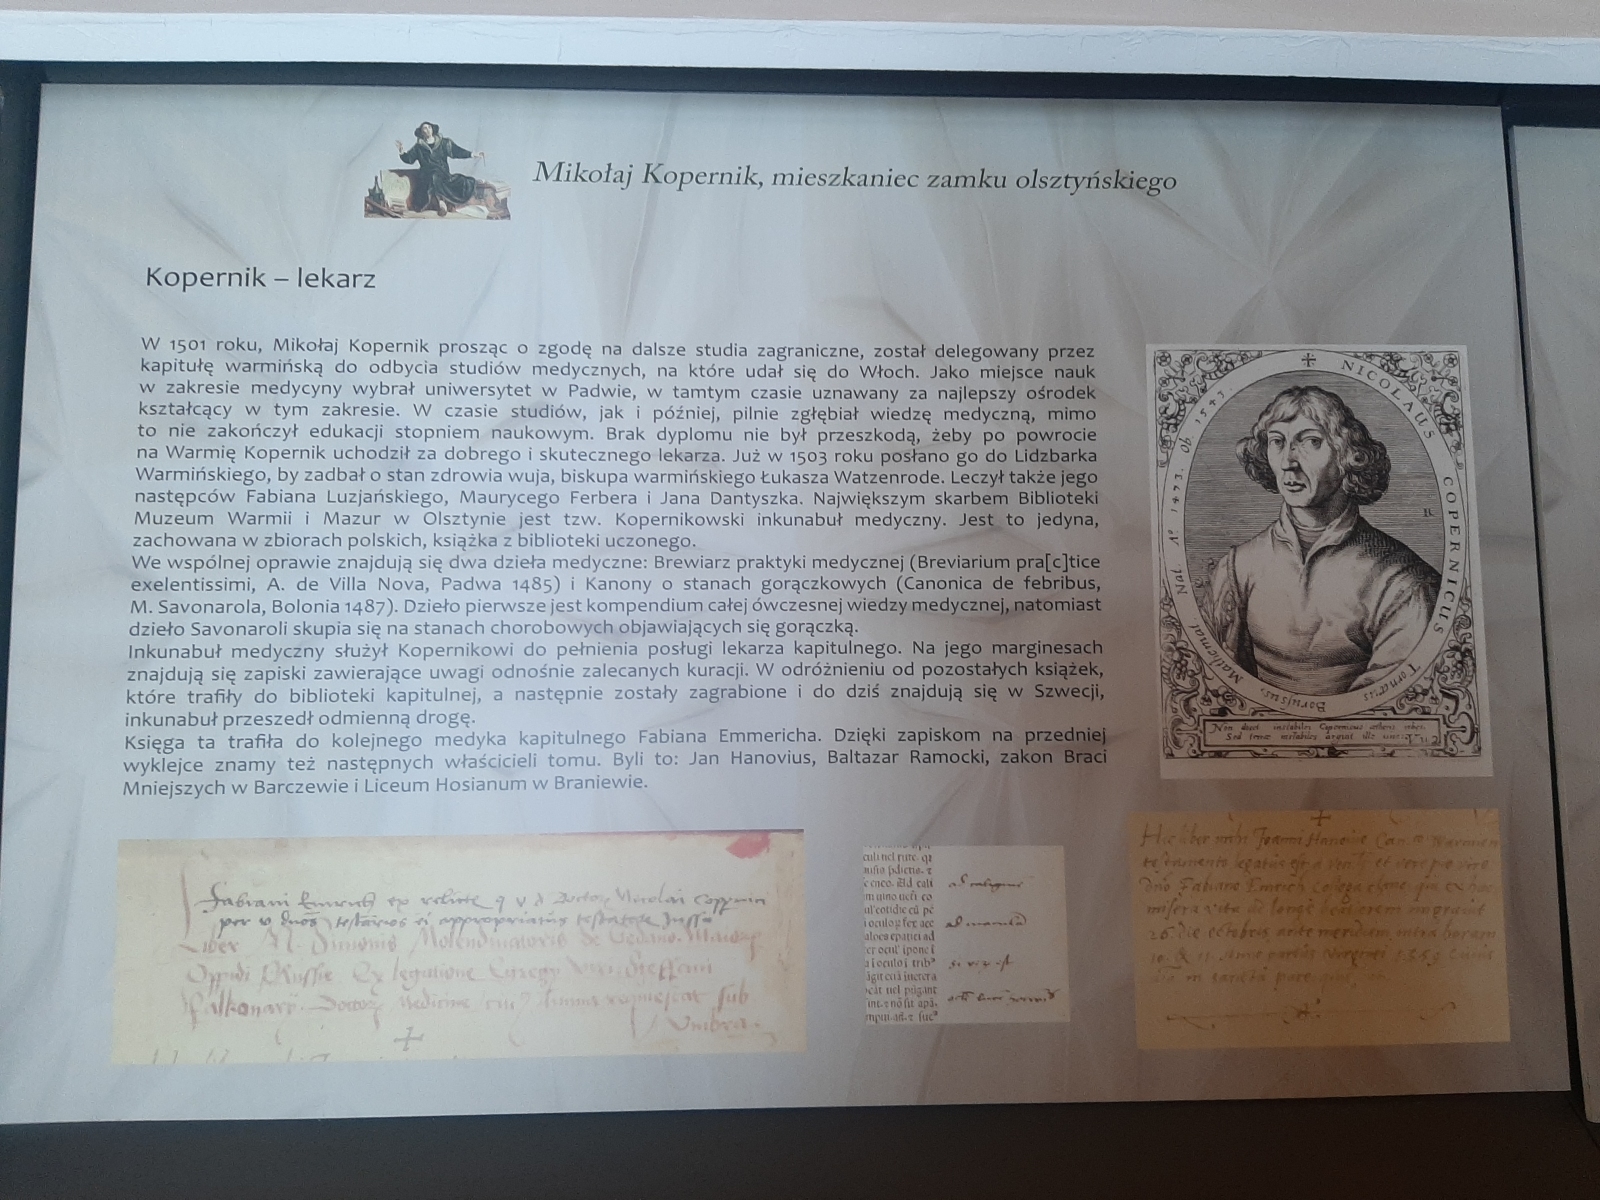 Mikołaj Kopernik, mieszkaniec zamku olsztyńskiego
Kopernik – lekarz
W 1501 roku, Mikołaj Kopernik prosząc o zgodę na dalsze studia zagraniczne, został delegowany przez
kapitułę warmińską do odbycia studiów medycznych, na które udał się do Włoch. Jako miejsce nauk
w zakresie medycyny wybrał uniwersytet w Padwie, w tamtym czasie uznawany za najlepszy ośrodek
kształcący w tym zakresie. W czasie studiów, jak i później, pilnie zgłębiał wiedzę medyczną, mimo
to nie zakończył edukacji stopniem naukowym. Brak dyplomu nie był przeszkodą, żeby po powrocie
na Warmię Kopernik uchodził za dobrego i skutecznego lekarza. Już w 1503 roku posłano go do Lidzbarka
Warmińskiego, by zadbał o stan zdrowia wuja, biskupa warmińskiego Łukasza Watzenrode. Leczył także jego
następców Fabiana Luzjańskiego, Maurycego Ferbera i Jana Dantyszka. Największym skarbem Biblioteki
Muzeum Warmii i Mazur w Olsztynie jest tzw. Kopernikowski inkunabuł medyczny. Jest to jedyna,
zachowana w zbiorach polskich, książka z biblioteki uczonego.
We wspólnej oprawie znajdują się dwa dzieła medyczne: Brewiarz praktyki medycznej (Breviarium pra[c]tice
exelentissimi, A. de Villa Nova, Padwa 1485) i Kanony o stanach gorączkowych (Canonica de febribus,
M. Savonarola, Bolonia 1487). Dzieło pierwsze jest kompendium całej ówczesnej wiedzy medycznej, natomiast
dzieło Savonaroli skupia się na stanach chorobowych objawiających się gorączką.
Inkunabuł medyczny służył Kopernikowi do pełnienia posługi lekarza kapitulnego. Na jego marginesach
znajdują się zapiski zawierające uwagi odnośnie zalecanych kuracji. W odróżnieniu od pozostałych książek,
które trafiły do biblioteki kapitulnej, a następnie zostały zagrabione i do dziś znajdują się w Szwecji,
inkunabuł przeszedł odmienną drogę.
Księga ta trafiła do kolejnego medyka kapitulnego Fabiana Emmericha. Dzięki zapiskom na przedniej
wyklejce znamy też następnych właścicieli tomu. Byli to: Jan Hanovius, Baltazar Ramocki, zakon Braci
Mniejszych w Barczewie i Liceum Hosianum w Braniewie.
NICOLAUS COPERNICUS Tornæus Borussus, Mathemat. Nat. Aº 1473. Ob. 1543.
Non docet instabiles Copernicus
Sed terræ instabiles arguit ille
Fabiani Emerich ex Doctor Nicolai Coppernici
Liber Simonis Molendinatoris de
Oppidi Prussie Ex legatione
Falkonarii Doctor Medicine sub
Umbra.
Hic liber mihi Joanni Hanovio Can. Warmien
testamento legatus est a et vere pio viro
Fabiano Emerich
misera vita ad
26. die octobris ante meridiem intra horam
10. & 11.